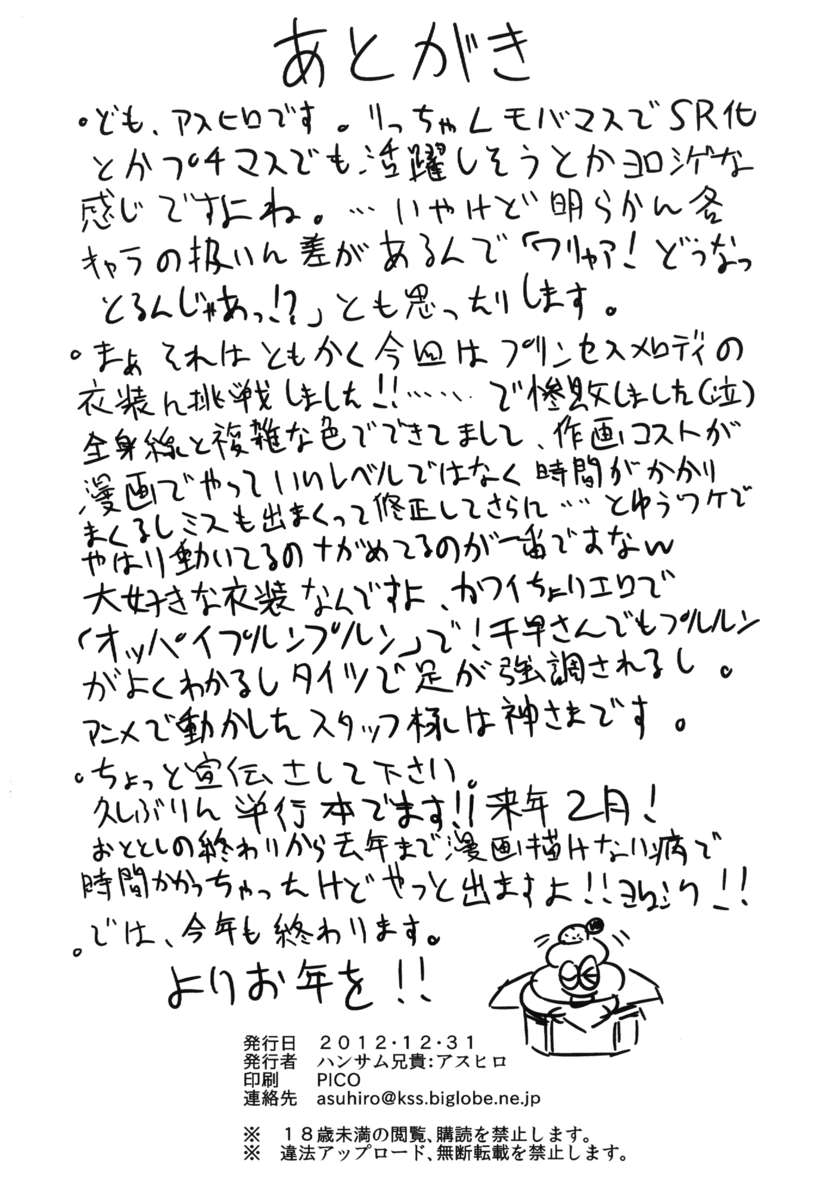 あとがき
・ども、アスヒロです。りっちゃんモバマスでSR化
とかプチマスでも活躍しそうとかヨロシゲな
感じですよね。…いやけど明らかん各
キャラの扱いん差があるんで「ワリャア!どうなっ
とるんじゃあっ!?」とも思ったりします。
・まぁそれはともかく今回はプリンセスメロディの
衣装ん挑戦しました!!……で惨敗しました(泣)
全身線と複雑な色でできてまして、作画コストが
漫画でやっていいレベルではなく時間がかかり
まくるしミスも出まくって修正してさらに…とゆうワケで
やはり動いてるのながめてるのが一番ですなw
大好きな衣装なんですよ、カワイちょりエロで
「オッパイプルンプルン」で!千早さんでもプルルン
がよくわかるしタイツで足が強調されるし。
アニメで動かしたスタッフ様は神さまです。
・ちょっと宣伝さして下さい。
久しぶりん単行本でます!!来年2月!
おととしの終わりから去年まで漫画描けない病で
時間かかっちゃったけどやっと出ますよ!!ヨロシク!!
・では、今年も終わります。
よりお年を!!
発行日 2012・12・31
発行者 ハンサム兄貴:アスヒロ
印刷 PICO
連絡先 asuhiro@kss.biglobe.ne.jp
※ 18歳未満の閲覧、購読を禁止します。
※ 違法アップロード、無断転載を禁止します。